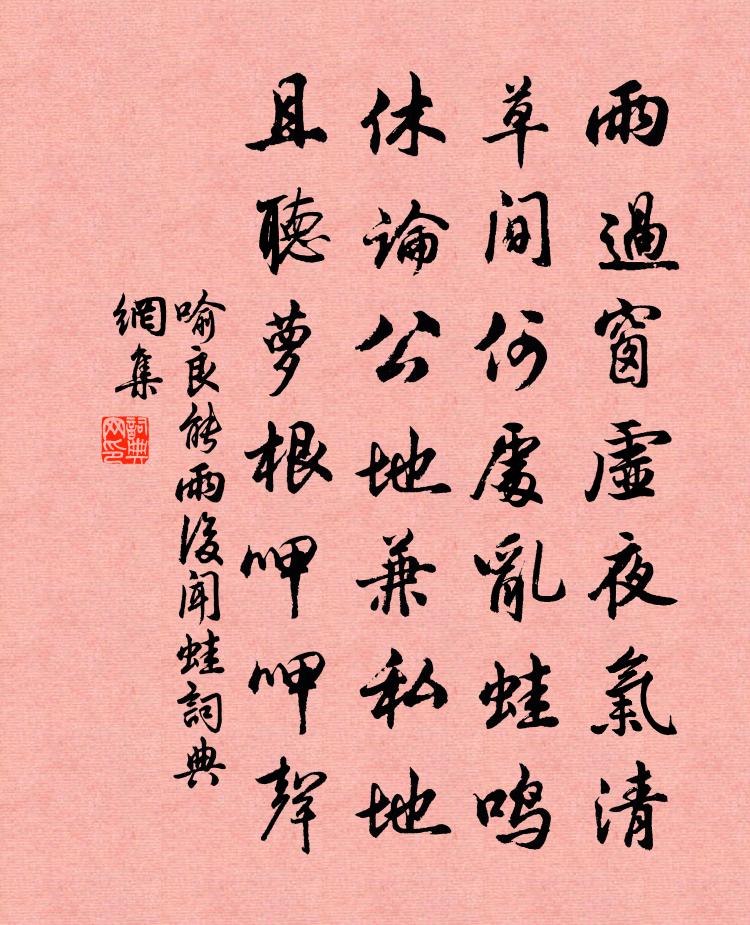 雨過窗虛夜氣清
草間何處亂蛙鳴
休論公地兼私地
且聽夢根呷呷聲
喻良能雨後聞蛙詞典
網集
詞典網印